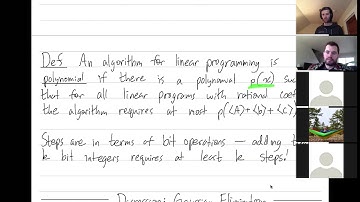 Def An algorithm for linear programming is
polynomial if there is a polynomial p(x) suc
that for all linear programs with rational coef
the algorithm requires at most p(⟨A⟩+⟨b⟩+⟨c⟩)
Steps are in terms of bit operations — adding t
k bit integers requires at least k steps.
Digression: Gaussian Elimination